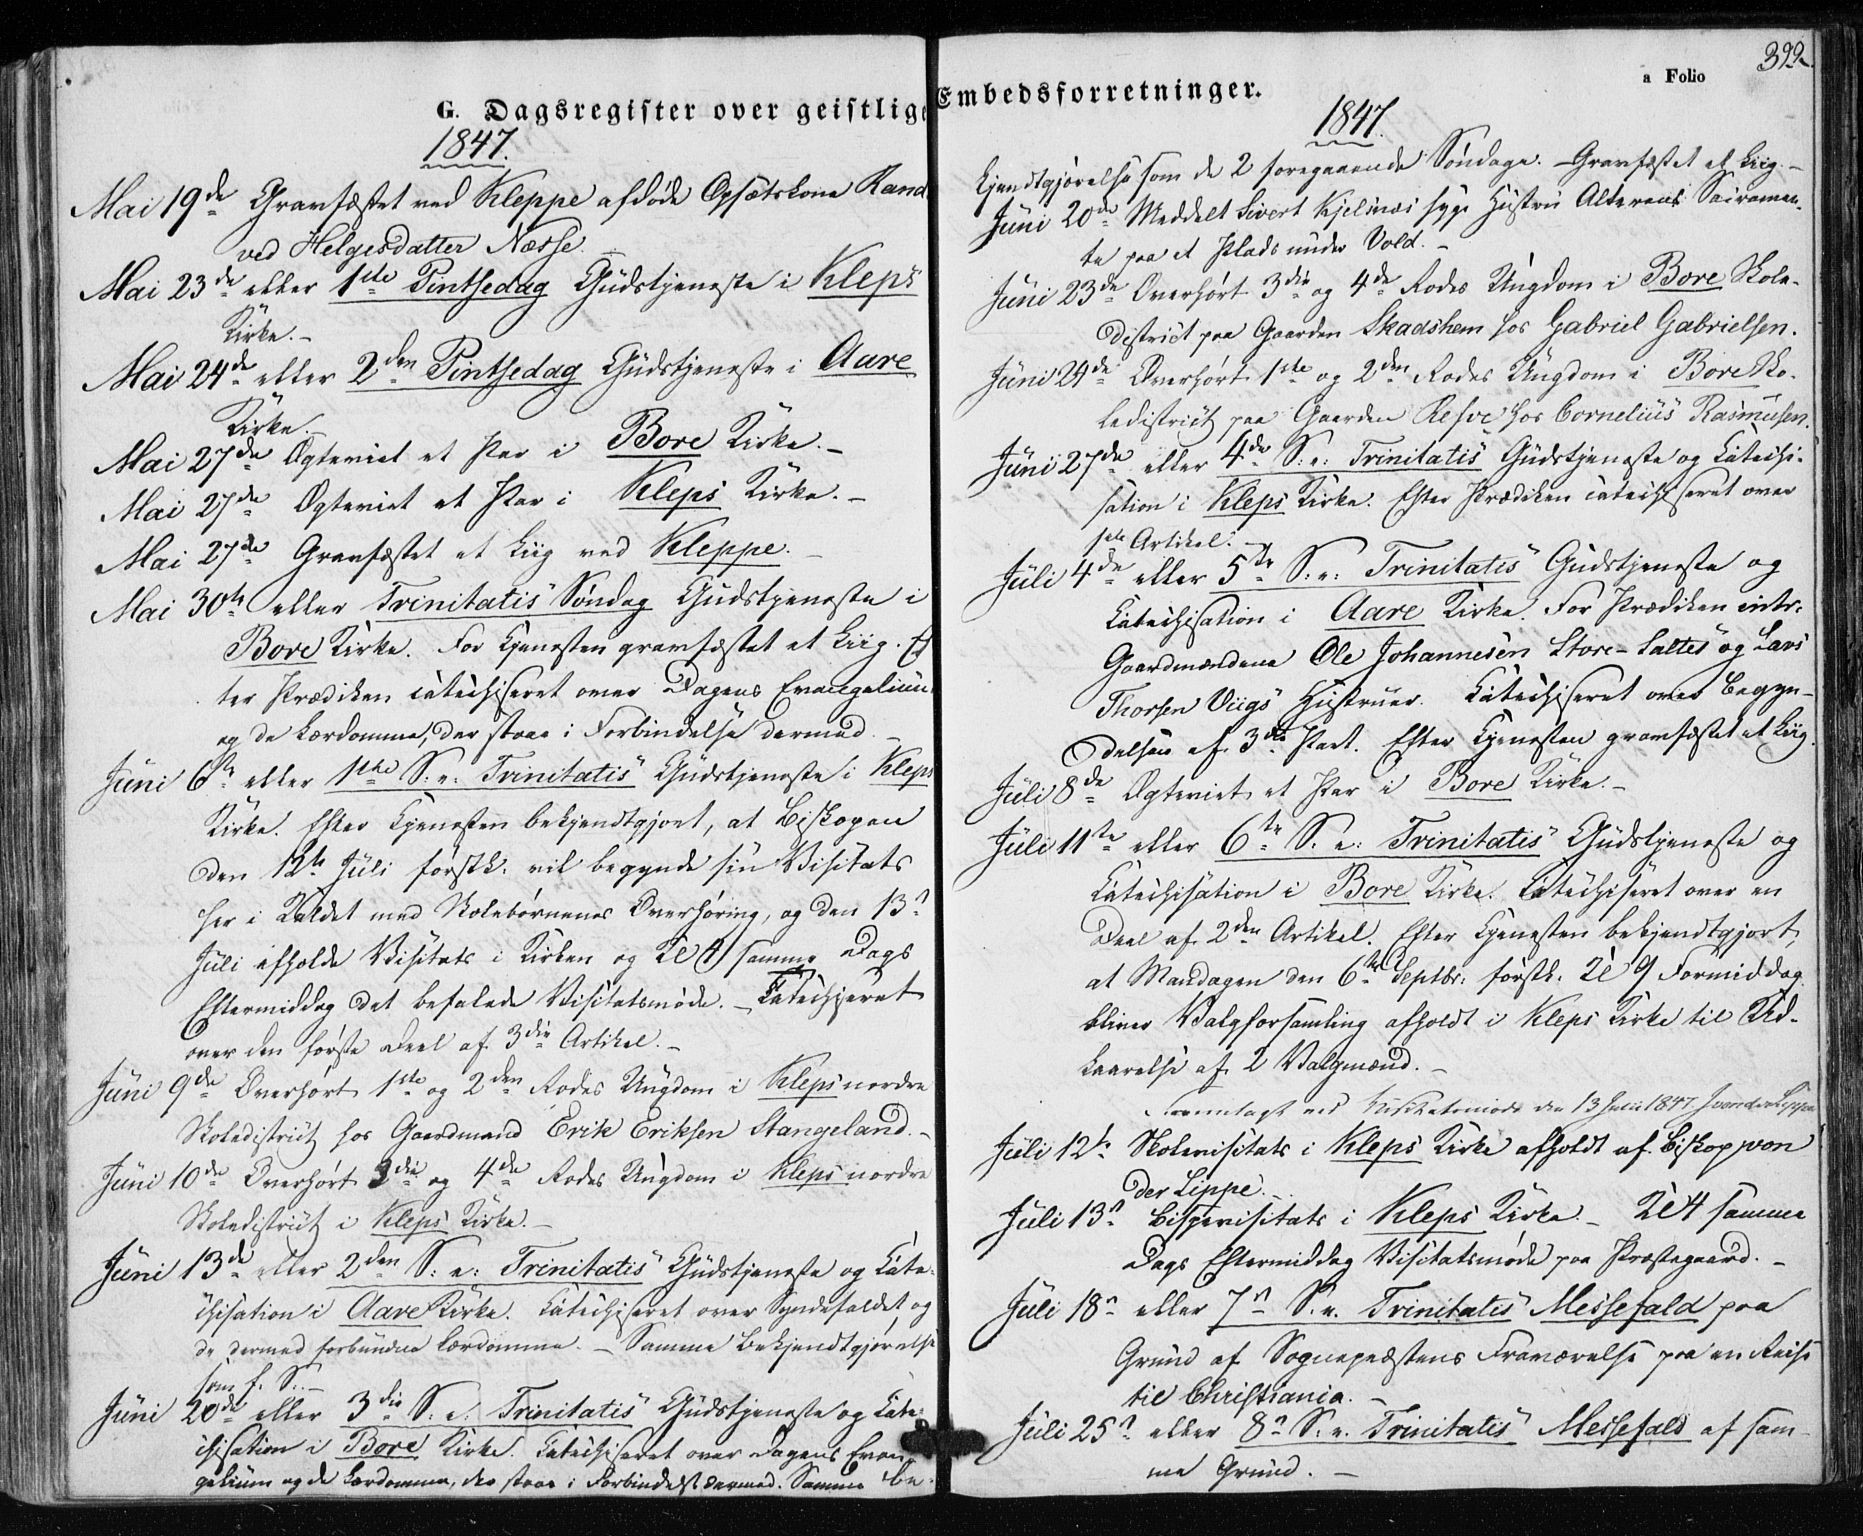 G. Dagsregister over geistlige
1847.
Mai 19de Gravfæstet ved Kleppe afdøde Opsætskone Rand
ved Helgesdatter Næsse.
Mai 23de eller 1ste Pintsedag Gudstjeneste i Kleps
Kirke. -
Mai 24de eller 2den Pintsedag Gudstjeneste i Aare
Kirke. -
Mai 27de Ægteviet et Par i Bore Kirke. -
Mai 27de Ægteviet et Par i Kleps Kirke. -
Mai 27de Gravfæstet et Liig ved Kleppe. -
Mai 30te eller Trinitatis Søndag Gudstjeneste i
Bore Kirke. Før Tjenesten gravfæstet et Liig. Ef
ter Prædiken catechiseret over Dagens Evangelium
og de Lærdomme, der staae i Forbindelse dermed. -
Juni 6te eller 1ste S. e. Trinitatis Gudstjeneste i Kleps
Kirke. Efter Tjenesten bekjendtgjort, at Biskopen
den 12te Juli førstk. vil begynde sin Visitats
her i Kaldet med Skolebørnenes Overhøring, og den 13de
Juli afholde Visitats i Kirken og Kl 4 samme Dags
Eftermiddag det befalede Visitatsmøde. - Catechiseret
over den første Deel af 3die Artikel. -
Juni 9de Overhørt 1ste og 2den Rodes Ungdom i Kleps nordre
Skoledistrict hos Gaardmand Erik Eriksen Stangeland. -
Juni 10de Overhørt 3die og 4de Rodes Ungdom i Kleps nordre
Skoledistrict i Kleps Kirke. -
Juni 13de eller 2den S. e. Trinitatis Gudstjeneste og Cate-
chisation i Aare Kirke. Catechiseret over Syndefaldet og
de dermed forbundne Lærdomme. - Samme Bekjendtgjørelse
som f. S. -
Juni 20de eller 3die S. e. Trinitatis Gudstjeneste og Cate-
chisation i Bore Kirke. Catechiseret over Dagens Evan-
gelium og de Lærdomme, der staae i Forbindelse dermed. Samme Be-
Embedsforretninger.
a Folio
399.
1847.
kjendtgjørelse som de 2 foregaaende Søndage. - Gravfæstet et Liig. -
Juni 20de Meddelt Sivert Kjelsnæs syge Hustru Alterens Sacramen-
te paa et Plads under Vold. -
Juni 23de Overhørt 3die og 4de Rodes Ungdom i Bore Skole-
district paa Gaarden Skadshem hos Gabriel Gabrielsen.
Juni 24de Overhørt 1ste og 2den Rodes Ungdom i Bore Sko-
ledistrict paa Gaarden Refve hos Cornelius Rasmusen.
Juni 27de eller 4de S. e. Trinitatis Gudstjeneste og Catechi-
sation i Kleps Kirke. Efter Prædiken catechiseret over
1ste Artikel. -
Juli 4de eller 5te S. e. Trinitatis Gudstjeneste og
Catechisation i Aare Kirke. Før Prædiken intr.
Gaardmændene Ole Johannesen Store-Saltes og Lars
Thorsen Viigs Hustruer. Catechiseret over Begyn-
delsen af 3die Part. Efter Tjenesten gravfæstet et Liig.
Juli 8de Ægteviet et Par i Bore Kirke. -
Juli 11te eller 6te S. e. Trinitatis Gudstjeneste og
Catechisation i Bore Kirke. Catechiseret over en
Deel af 2den Artikel. Efter Tjenesten bekjendtgjort,
at Mandagen den 6te Septbr. førstk. Kl 9 Formiddag
bliver Valgforsamling afholdt i Kleps Kirke til Ud-
kaarelse af 2 Valgmænd. -
Fremlagt ved Visitatsmøde den 13 Juli 1847 J von der Lippe
Juli 12te Skolevisitats i Kleps Kirke afholdt af Biskop von
der Lippe. -
Juli 13de Bispevisitats i Kleps Kirke. - Kl 4 samme
Dags Eftermiddag Visitatsmøde paa Præstegaard. -
Juli 18de eller 7de S. e. Trinitatis Messefald paa
Grund af Sognepræstens Fraværelse paa en Reise
til Christiania. -
Juli 25de eller 8de S. e. Trinitatis Messefald af sam-
me Grund. -